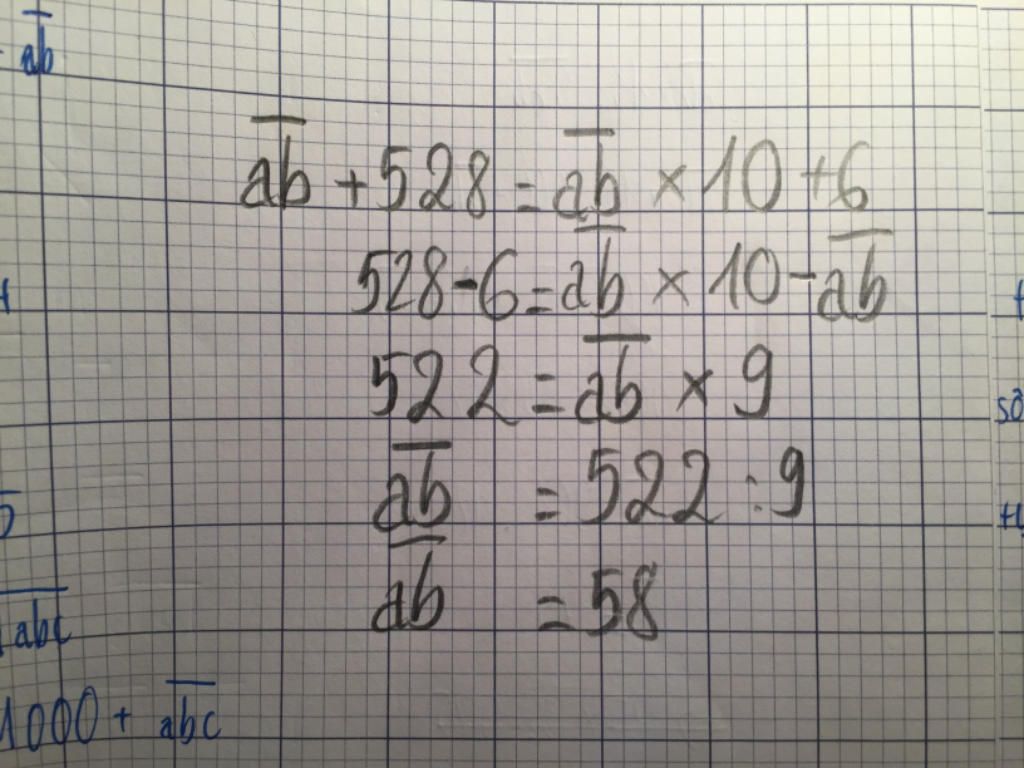 a̅b̅
a̅b̅ + 528 = a̅b̅ × 10 + 6
528 - 6 = a̅b̅ × 10 - a̅b̅
522 = a̅b̅ × 9
a̅b̅ = 522 : 9
a̅b̅ = 58
a̅b̅c̅
1000 + a̅b̅c̅